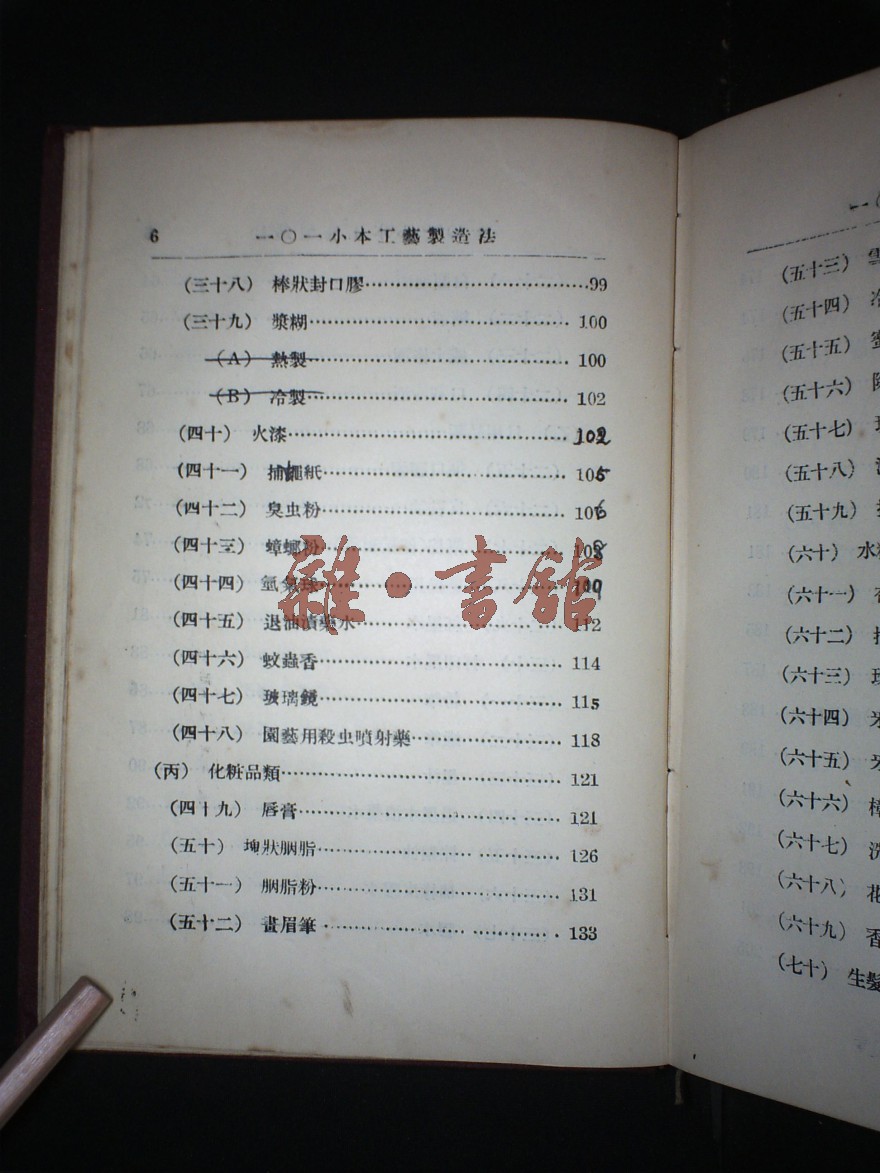 6 一〇一小本工藝製造法
(三十八) 棒狀封口膠 99
(三十九) 漿糊 100
(A) 熱製 100
(B) 冷製 102
(四十) 火漆 102
(四十一) 捕蠅紙 105
(四十二) 臭虫粉 106
(四十三) 蟑螂粉 108
(四十四) 氫氣球 109
(四十五) 退油漬藥水 112
(四十六) 蚊蟲香 114
(四十七) 玻璃鏡 115
(四十八) 園藝用殺虫噴射藥 118
(丙) 化粧品類 121
(四十九) 唇膏 121
(五十) 塊狀胭脂 126
(五十一) 胭脂粉 131
(五十二) 畫眉筆 133
雜·書館
一〇
(五十三)
(五十四)
(五十五)
(五十六)
(五十七)
(五十八)
(五十九)
(六十) 水
(六十一)
(六十二)
(六十三)
(六十四)
(六十五)
(六十六)
(六十七)
(六十八) 花
(六十九)
(七十) 生髮